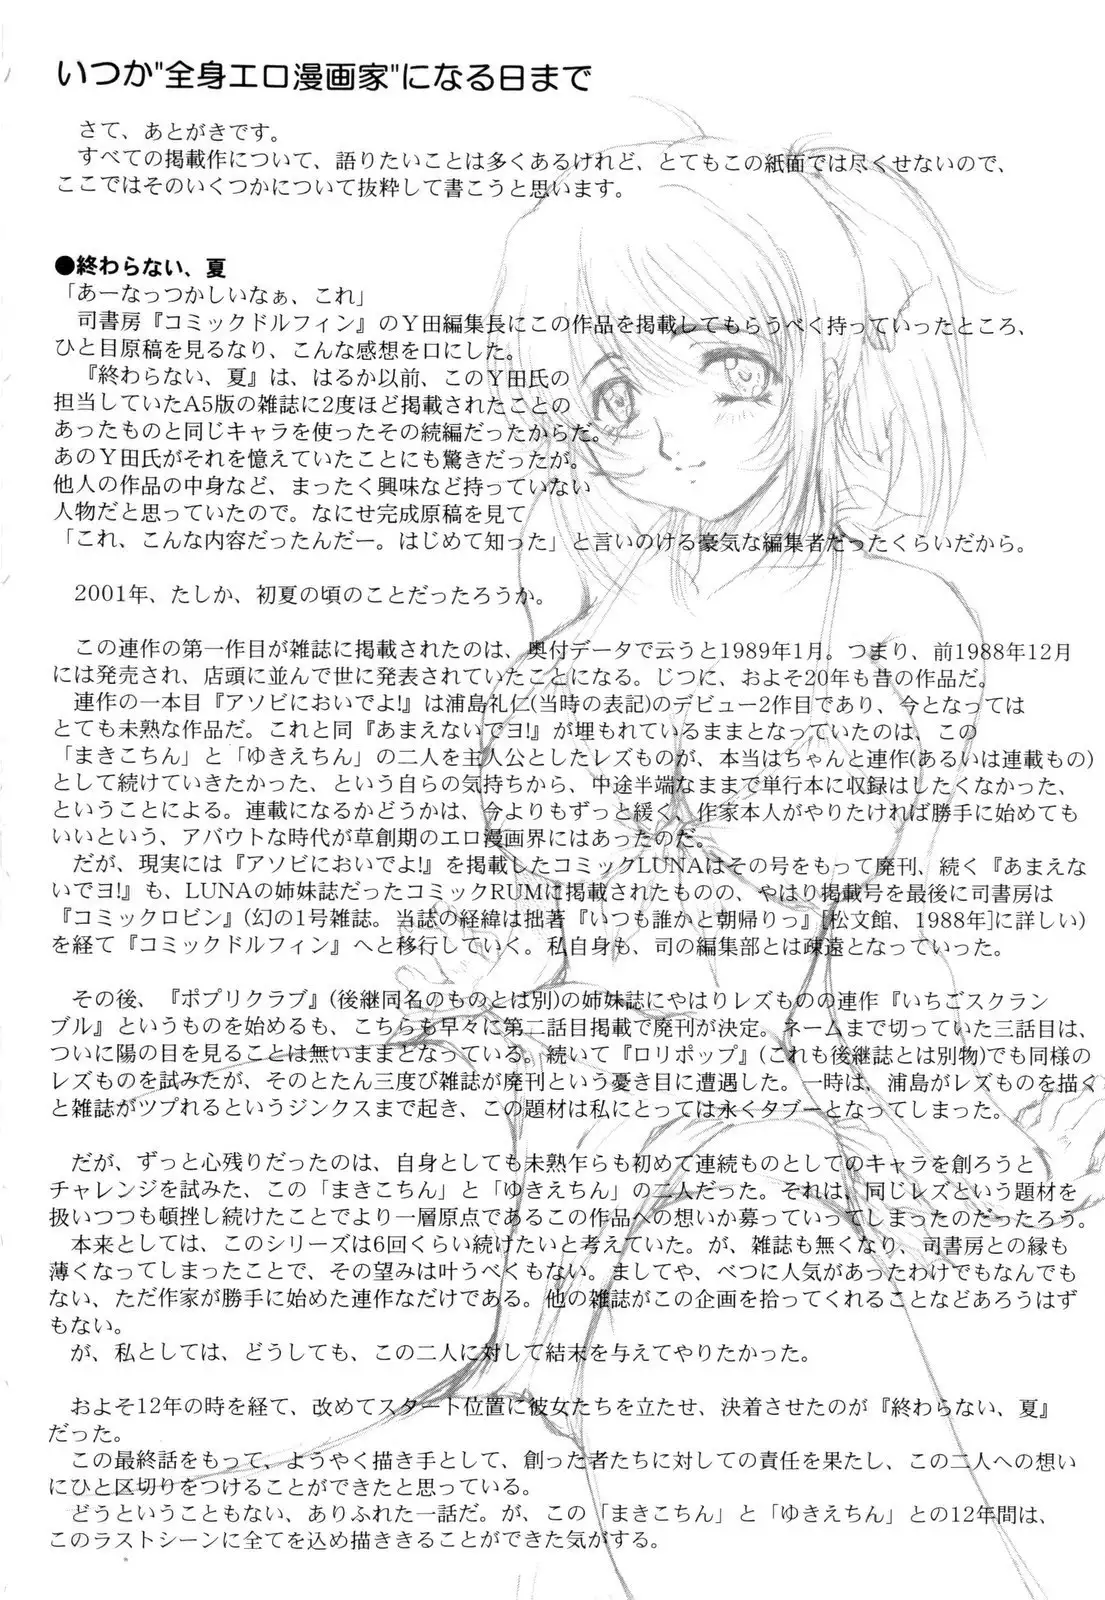 いつか"全身エロ漫画家"になる日まで
さて、あとがきです。
すべての掲載作について、語りたいことは多くあるけれど、とてもこの紙面では尽くせないので、
ここではそのいくつかについて抜粋して書こうと思います。
●終わらない、夏
「あーなっつかしいなぁ、これ」
司書房『コミックドルフィン』のＹ田編集長にこの作品を掲載してもらうべく持っていったところ、
ひと目原稿を見るなり、こんな感想を口にした。
『終わらない、夏』は、はるか以前、このＹ田氏の
担当していたA5版の雑誌に2度ほど掲載されたことの
あったものと同じキャラを使ったその続編だったからだ。
あのＹ田氏がそれを憶えていたことにも驚きだったが。
他人の作品の中身など、まったく興味など持っていない
人物だと思っていたので。なにせ完成原稿を見て
「これ、こんな内容だったんだー。はじめて知った」と言いのける豪気な編集者だったくらいだから。
2001年、たしか、初夏の頃のことだったろうか。
この連作の第一作目が雑誌に掲載されたのは、奥付データで云うと1989年1月。つまり、前1988年12月
には発売され、店頭に並んで世に発表されていたことになる。じつに、およそ20年も昔の作品だ。
連作の一本目『アソビにおいでよ!』は浦島礼仁(当時の表記)のデビュー2作目であり、今となっては
とても未熟な作品だ。これと同『あまえないでヨ!』が埋もれているままとなっていたのは、この
「まきこちん」と「ゆきえちん」の二人を主人公としたレズものが、本当はちゃんと連作(あるいは連載もの)
として続けていきたかった、という自らの気持ちから、中途半端なままで単行本に収録はしたくなかった、
ということによる。連載になるかどうかは、今よりもずっと緩く、作家本人がやりたければ勝手に始めても
いいという、アバウトな時代が草創期のエロ漫画界にはあったのだ。
だが、現実には『アソビにおいでよ!』を掲載したコミックLUNAはその号をもって廃刊、続く『あまえな
いでヨ!』も、LUNAの姉妹誌だったコミックRUMに掲載されたものの、やはり掲載号を最後に司書房は
『コミックロビン』(幻の1号雑誌。当誌の経緯は拙著『いつも誰かと朝帰りっ』[松文館、1988年]に詳しい)
を経て『コミックドルフィン』へと移行していく。私自身も、司の編集部とは疎遠となっていった。
その後、『ポプリクラブ』(後継同名のものとは別)の姉妹誌にやはりレズものの連作『いちごスクラン
ブル』というものを始めるも、こちらも早々に第二話目掲載で廃刊が決定。ネームまで切っていた三話目は、
ついに陽の目を見ることは無いままとなっている。続いて『ロリポップ』(これも後継誌とは別物)でも同様の
レズものを試みたが、そのとたん三度び雑誌が廃刊という憂き目に遭遇した。一時は、浦島がレズものを描く
と雑誌がツブれるというジンクスまで起き、この題材は私にとっては永くタブーとなってしまった。
だが、ずっと心残りだったのは、自身としても未熟乍らも初めて連続ものとしてのキャラを創ろうと
チャレンジを試みた、この「まきこちん」と「ゆきえちん」の二人だった。それは、同じレズという題材を
扱いつつも頓挫し続けたことでより一層原点であるこの作品への想いか募っていってしまったのだったろう。
本来としては、このシリーズは6回くらい続けたいと考えていた。が、雑誌も無くなり、司書房との縁も
薄くなってしまったことで、その望みは叶うべくもない。ましてや、べつに人気があったわけでもなんでも
ない、ただ作家が勝手に始めた連作なだけである。他の雑誌がこの企画を拾ってくれることなどあろうはず
もない。
が、私としては、どうしても、この二人に対して結末を与えてやりたかった。
およそ12年の時を経て、改めてスタート位置に彼女たちを立たせ、決着させたのが『終わらない、夏』
だった。
この最終話をもって、ようやく描き手として、創った者たちに対しての責任を果たし、この二人への想い
にひと区切りをつけることができたと思っている。
どうということもない、ありふれた一話だ。が、この「まきこちん」と「ゆきえちん」との12年間は、
このラストシーンに全てを込め描ききることができた気がする。